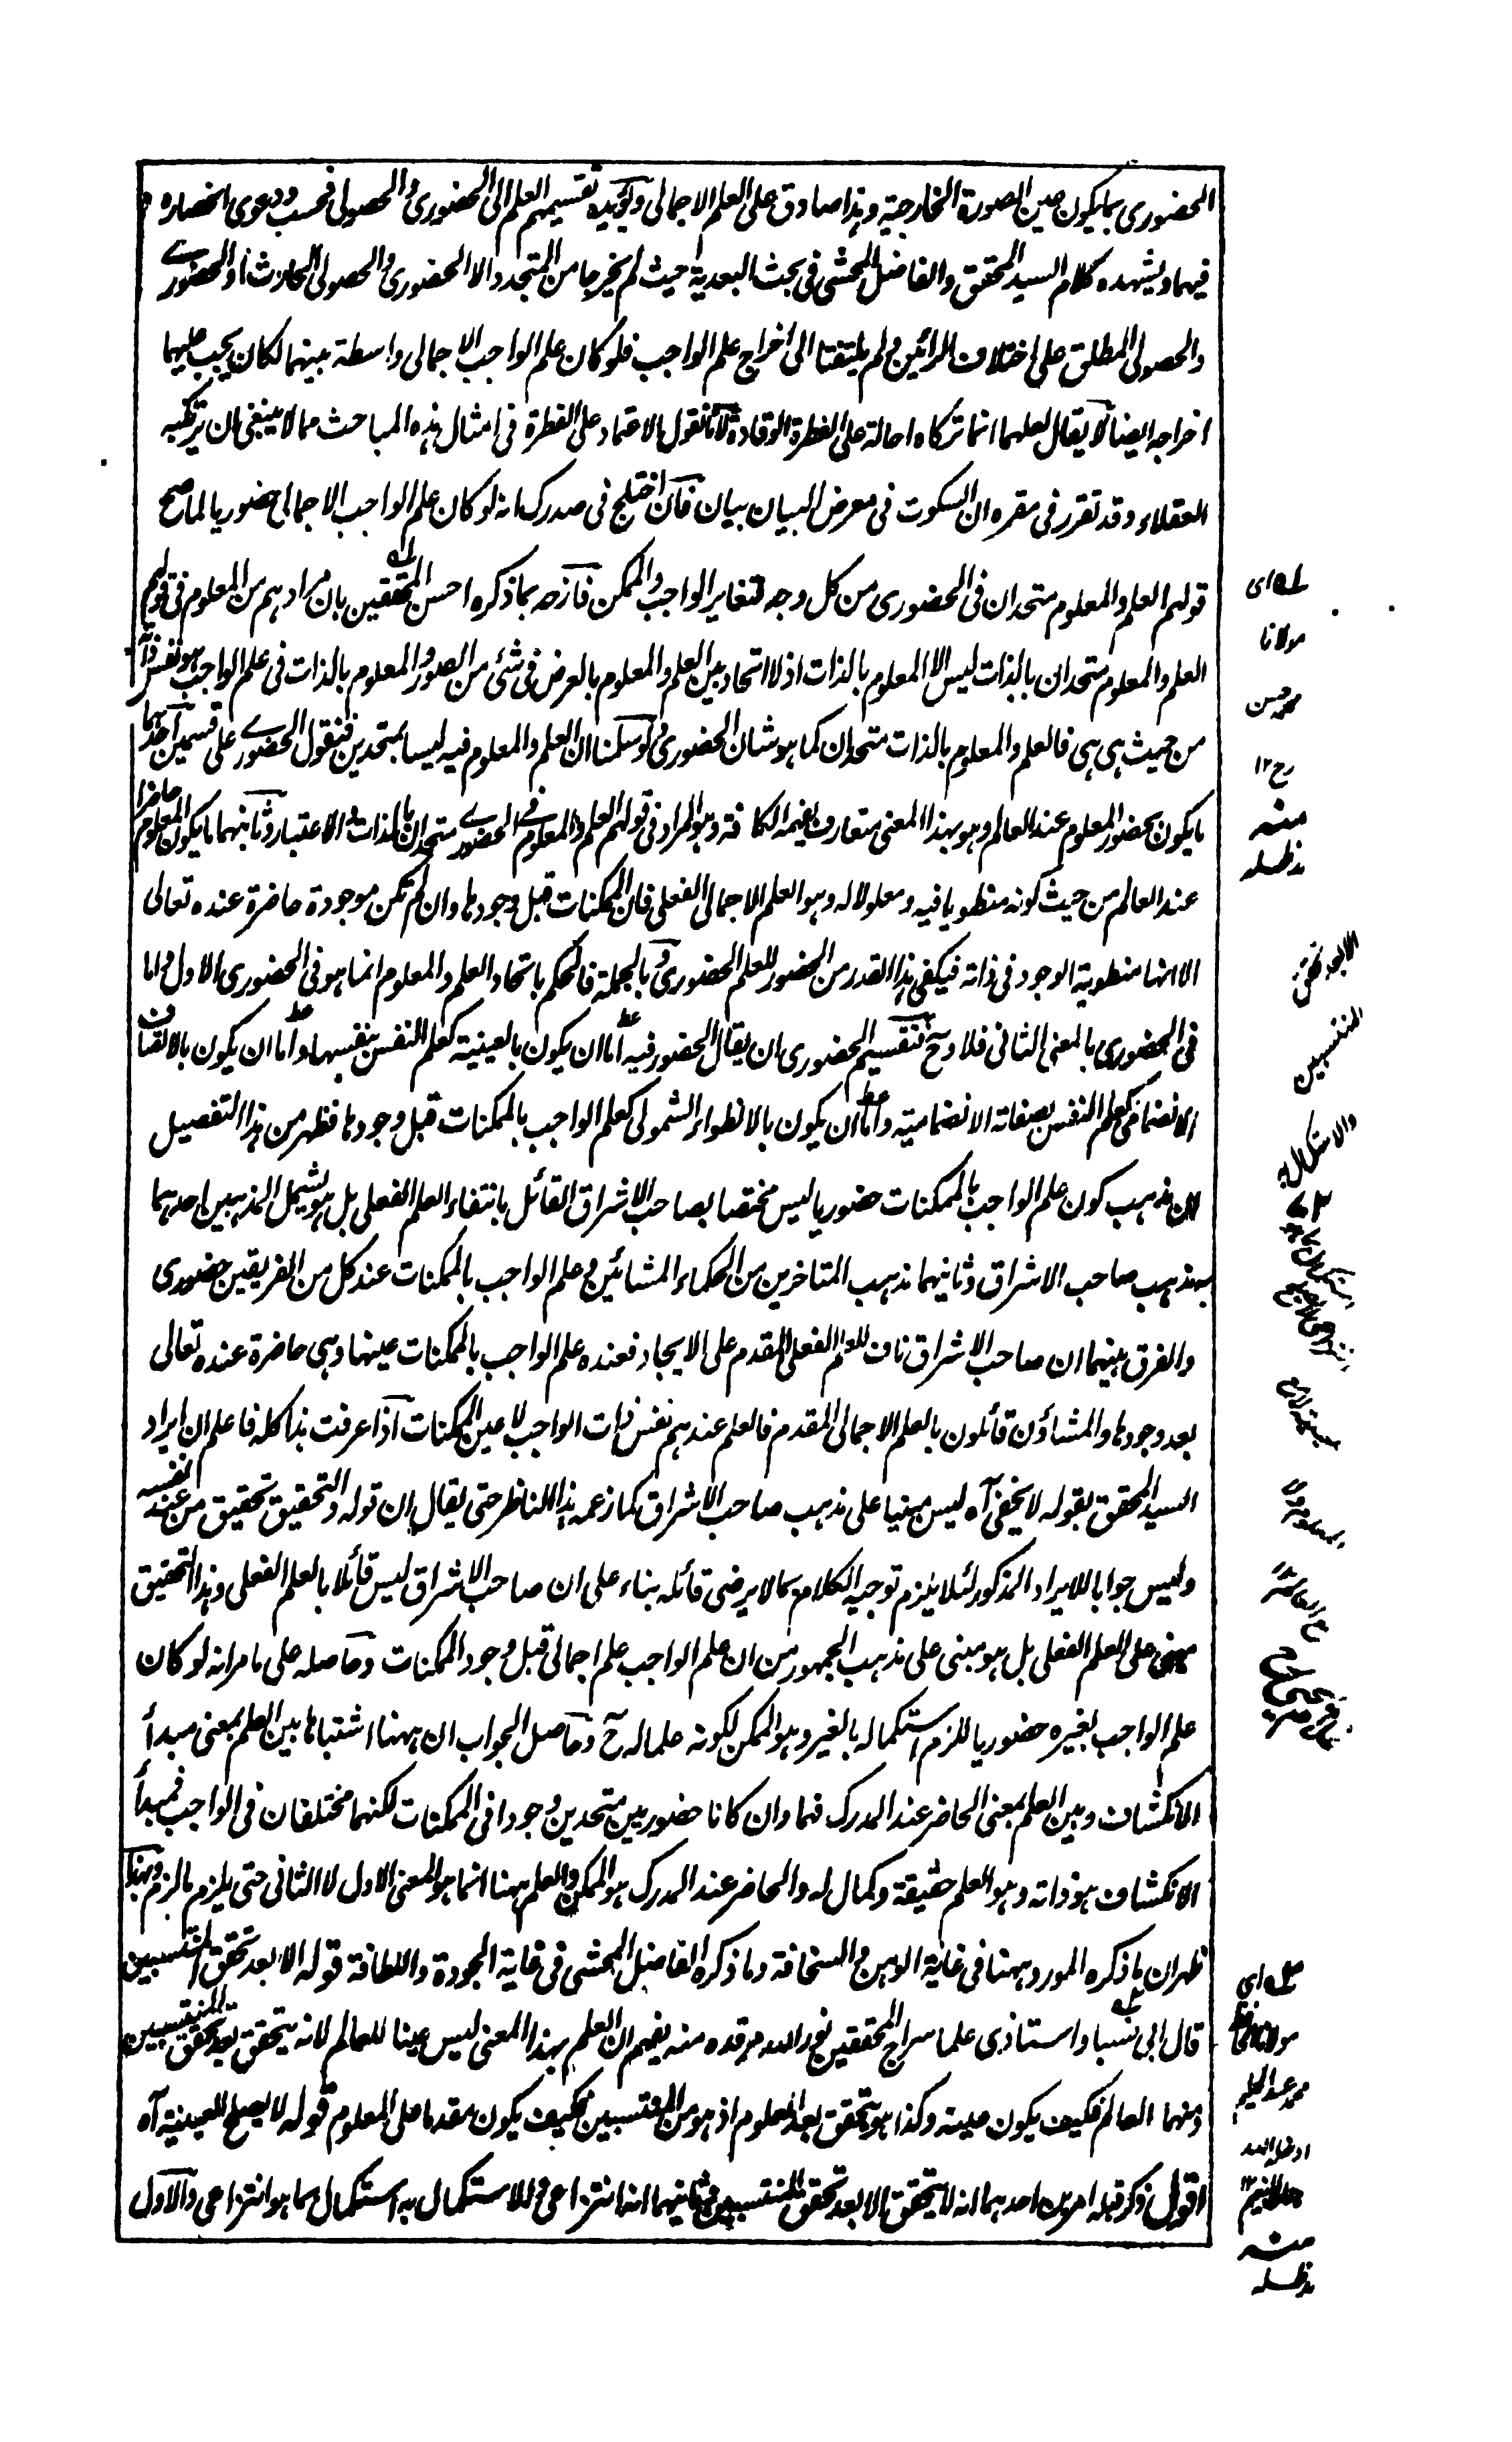 الحضوري بما يكون عين الصورة الخارجية وهذا صادق على العلم الاجمالى ويؤيده تقسيمهم العلم الى الحضورى والحصولى فحسب ودعوى انحصاره
فيهما ويشهده كلام السيد المحقق والفاضل المحشى فى بحث البعدية حيث لم يخرجا من المتجدد الا الحضورى والحصولى الحادث او الحضورے
والحصولى المطلق على اختلاف الرائين ولم يلتفتا الى اخراج علم الواجب فلو كان علم الواجب الاجمالى واسطة بينهما لكان يجب عليهما
اخراجه ايضا لا يقال لعلهما انما تركاه احالة على الفطرة الوقادة لانا نقول الاعتماد على الفطرة فى امثال هذه المباحث مما لا ينبغى ان يرتكبه
العقلاء وقد تقرر فى مقره ان السكوت فى معرض البيان بيان فان اختلج فى صدرك انه لو كان علم الواجب الاجمالى حضوريا لما صح
قولهم العلم والمعلوم متحدان فى الحضورى من كل وجه لتغاير الواجب والممكن فازحه بما ذكره احسن المحققين بان مرادهم من المعلوم فى قولهم
العلم والمعلوم متحدان بالذات ليس الا المعلوم بالذات اذ لا اتحاد بين العلم والمعلوم بالعرض فى شئ من الصور والمعلوم بالذات فى علم الواجب هو نفس ذاته
من حيث هى هى فالعلم والمعلوم بالذات متحدان كما هو شان الحضورى ولو سلمنا ان العلم والمعلوم فيه ليسا بمتحدين فنقول الحضورے على قسمين احدهما
ما يكون بحضور المعلوم عند العالم وهو بهذا المعنى متعارف يفهمه الكافة وهو المراد فى قولهم العلم والمعلوم فى الحضورے متحدان بالذات والاعتبار وثانيهما ما يكون المعلوم حاضرا
عند العالم من حيث كونه منطويا فيه ومعلولا له وهو العلم الاجمالى الفعلى فان الممكنات قبل وجودها وان لم تكن موجودة حاضرة عنده تعالى
الا انها منطوية الوجود فى ذاته فيكفى هذا القدر من الحضور للعلم الحضورى وبالجملة فالحكم باتحاد العلم والمعلوم انما هو فى الحضورى الاول واما
فى الحضورى بالمعنى الثانى فلا وح فتقسيم الحضورى ان يقال الحضور فيه اما ان يكون بالعينية كعلم النفس بنفسها واما ان يكون بالاتصاف
الانضمامى كعلم النفس بصفاته الانضمامية واما ان يكون بالانطواء الشمولى كعلم الواجب بالممكنات قبل وجودها فظهر من هذا التفصيل
ان مذهب كون علم الواجب بالممكنات حضوريا ليس مختصا بصاحب الاشراق القائل بانتفاء العلم الفعلى بل هو يشمل المذهبين احدهما
مذهب صاحب الاشراق وثانيهما مذهب المتاخرين من الحكماء المشائين و علم الواجب بالممكنات عند كل من الفريقين حضورى
والفرق بينهما ان صاحب الاشراق ناف للعلم الفعلى المقدم على الايجاد فعنده علم الواجب بالممكنات عينها وهى حاضرة عنده تعالى
بعد وجودها والمشاؤن قائلون بالعلم الاجمالى المقدم فالعلم عندهم نفس ذات الواجب لا عين الممكنات اذا عرفت هذا كله فاعلم ان ايراد
السيد المحقق بقوله لا يخفى آه ليس مبنيا على مذهب صاحب الاشراق كما زعمه هذا الناظر حتى يقال ان قوله والتحقيق تحقيق من عند نفسه
وليس جوابا للايراد المذكور لئلا يلزم توجيه الكلام بما لا يرضى قائله بناء على ان صاحب الاشراق ليس قائلا بالعلم الفعلى وهذا التحقيق
مبنى على العلم الفعلى بل هو مبنى على مذهب الجمهور من ان علم الواجب علم اجمالى قبل وجود الممكنات وحاصله على ما مر انه لو كان
علم الواجب بغيره حضوريا للزم استكماله بالغير وهو الممكن لكونه علما له ح وحاصل الجواب ان ههنا اشتباها بين العلم بمعنى مبدأ
الانكشاف وبين العلم بمعنى الحاضر عند المدرك فهما وان كانا حضوريين متحدين وجودا فى الممكنات لكنهما مختلفان فى الواجب فمبدأ
الانكشاف هو ذاته وهو العلم حقيقة وكمال له والحاضر عند المدرك هو الممكن والعلم ههنا انما هو المعنى الاول لا الثانى حتى يلزم ما لزم وبهذا
ظهر ان ما ذكره المورد ههنا فى غاية الوهن والسخافة وما ذكره الفاضل المحشى فى غاية الجودة واللطافة قوله الا بعد تحقق المنتسبين
قال ابى نسبا واستاذى علما سراج المحققين نور الله مرقده منه يفهم ان العلم بهذا المعنى ليس عينا للعالم لانه يتحقق بعد تحقق المنتسبين
ومنهما العالم فكيف يكون عينه وكذا هو يتحقق بعد المعلوم اذ هو من المنتسبين فكيف يكون مقدما على المعلوم قوله لا يصلح للعينية آه
اقول ذكر قبله امرين احدهما انه لا يتحقق الا بعد تحقق المنتسبين وثانيهما انه انتزاعى والاستكمال به استكمال بما هو انتزاعى والاول
له اى
مولانا
محمد حسن
رح ١٢
منه
مدظله
المنتسبين
والاستكمال به
اى
مولانا
محمد عبد الحليم
ادخله الله
دار النعيم ١٢
منه
مدظله